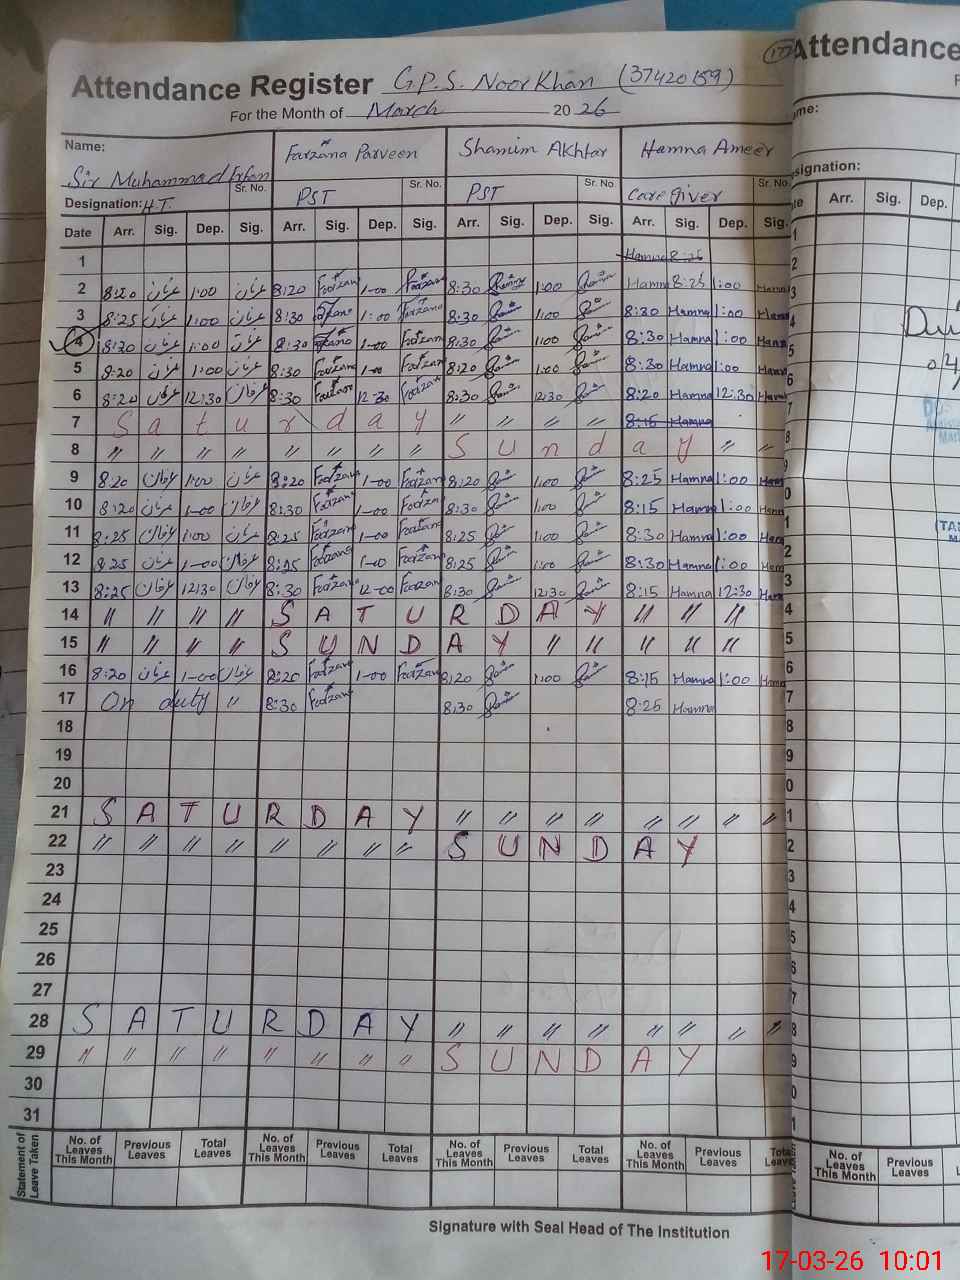 Attendance Register G.P.S. Noor Khan (37420159)
For the Month of March 2026
Name: Sir Muhammad Irfan Farzana Parveen Shamim Akhtar Hamna Ameer
Sr. No. Sr. No. Sr. No. Sr. No.
Designation: H.T. PST PST Care giver
Date Arr. Sig. Dep. Sig. Arr. Sig. Dep. Sig. Arr. Sig. Dep. Sig. Arr. Sig. Dep. Sig.
1 Hamna 8:25
2 8:20 عرفان 1:00 عرفان 8:20 Farzana 1-00 Farzana 8:30 1:00 Hamna 8:25 1:00 Hamna
3 8:25 عرفان 1:00 عرفان 8:30 Farzana 1:00 Farzana 8:30 1:00 8:30 Hamna 1:00 Hamna
4 8:20 عرفان 1:00 عرفان 8:30 Farzana 1-00 Farzana 8:30 1:00 8:30 Hamna 1:00 Hamna
5 8:20 عرفان 1:00 عرفان 8:30 Farzana 1-00 Farzana 8:20 1:00 8:30 Hamna 1:00 Hamna
6 8:20 عرفان 12:30 عرفان 8:30 Farzana 12-30 Farzana 8:30 12:30 8:20 Hamna 12:30 Hamna
7 Saturday " " " " 8:15 Hamna
8 " " " " " " " " Sunday " "
9 8:20 عرفان 1:00 عرفان 8:20 Farzana 1-00 Farzana 8:20 1:00 8:25 Hamna 1:00 Hamna
10 8:20 عرفان 1-00 عرفان 8:30 Farzana 1-00 Farzana 8:30 1:00 8:15 Hamna 1:00 Hamna
11 8:25 عرفان 1:00 عرفان 8:25 Farzana 1-00 Farzana 8:25 1:00 8:30 Hamna 1:00 Hamna
12 8:25 عرفان 1-00 عرفان 8:25 Farzana 1-00 Farzana 8:25 1:00 8:30 Hamna 1:00 Hamna
13 8:25 عرفان 12:30 عرفان 8:30 Farzana 12-00 Farzana 8:30 12:30 8:15 Hamna 12:30 Hamna
14 " " " " SATURDAY " " "
15 " " " " SUNDAY " " " " "
16 8:20 عرفان 1-00 عرفان 8:20 Farzana 1-00 Farzana 8:20 1:00 8:15 Hamna 1:00 Hamna
17 On duty " 8:30 Farzana 8:30 8:25 Hamna
18
19
20
21 SATURDAY " " " " " " " "
22 " " " " " " " " SUNDAY
23
24
25
26
27
28 SATURDAY " " " " " " " "
29 " " " " " " " " SUNDAY
30
31
Statement of Leave Taken
No. of Leaves This Month Previous Leaves Total Leaves No. of Leaves This Month Previous Leaves Total Leaves No. of Leaves This Month Previous Leaves Total Leaves No. of Leaves This Month Previous Leaves Total Leave
Signature with Seal Head of The Institution
Attendance
me:
signation:
Arr. Sig. Dep.
No. of Leaves This Month Previous Leaves
17-03-26 10:01